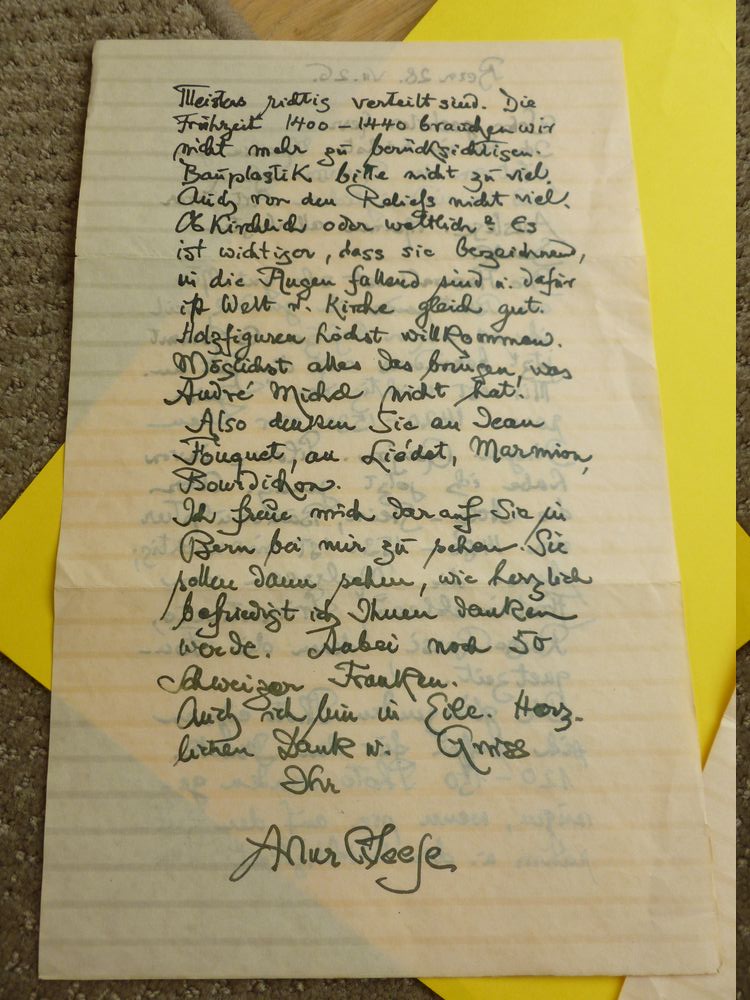 Bern 28. VII. 26.
Meisters richtig verteilt sind. Die
Frühzeit 1400 – 1440 brauchen wir
nicht mehr zu berücksichtigen.
Bauplastik bitte nicht zu viel.
Auch von den Reliefs nicht viel.
Ob Kirchlich oder weltlich? Es
ist wichtiger, dass sie bezeichnend,
in die Augen fallend sind u. dafür
ist Welt u. Kirche gleich gut.
Holzfiguren höchst willkommen.
Möglichst alles das bringen, was
André Michel nicht hat!
Also denken Sie an Jean
Fouquet, an Liédet, Marmion,
Bourdichon.
Ich freue mich darauf Sie in
Bern bei mir zu sehen. Sie
sollen dann sehen, wie herzlich
befriedigt ich Ihnen danken
werde. Anbei noch 50
Schweizer Franken.
Auch ich bin in Eile. Herz-
lichen Dank u. Gruss
Ihr
Artur Weese